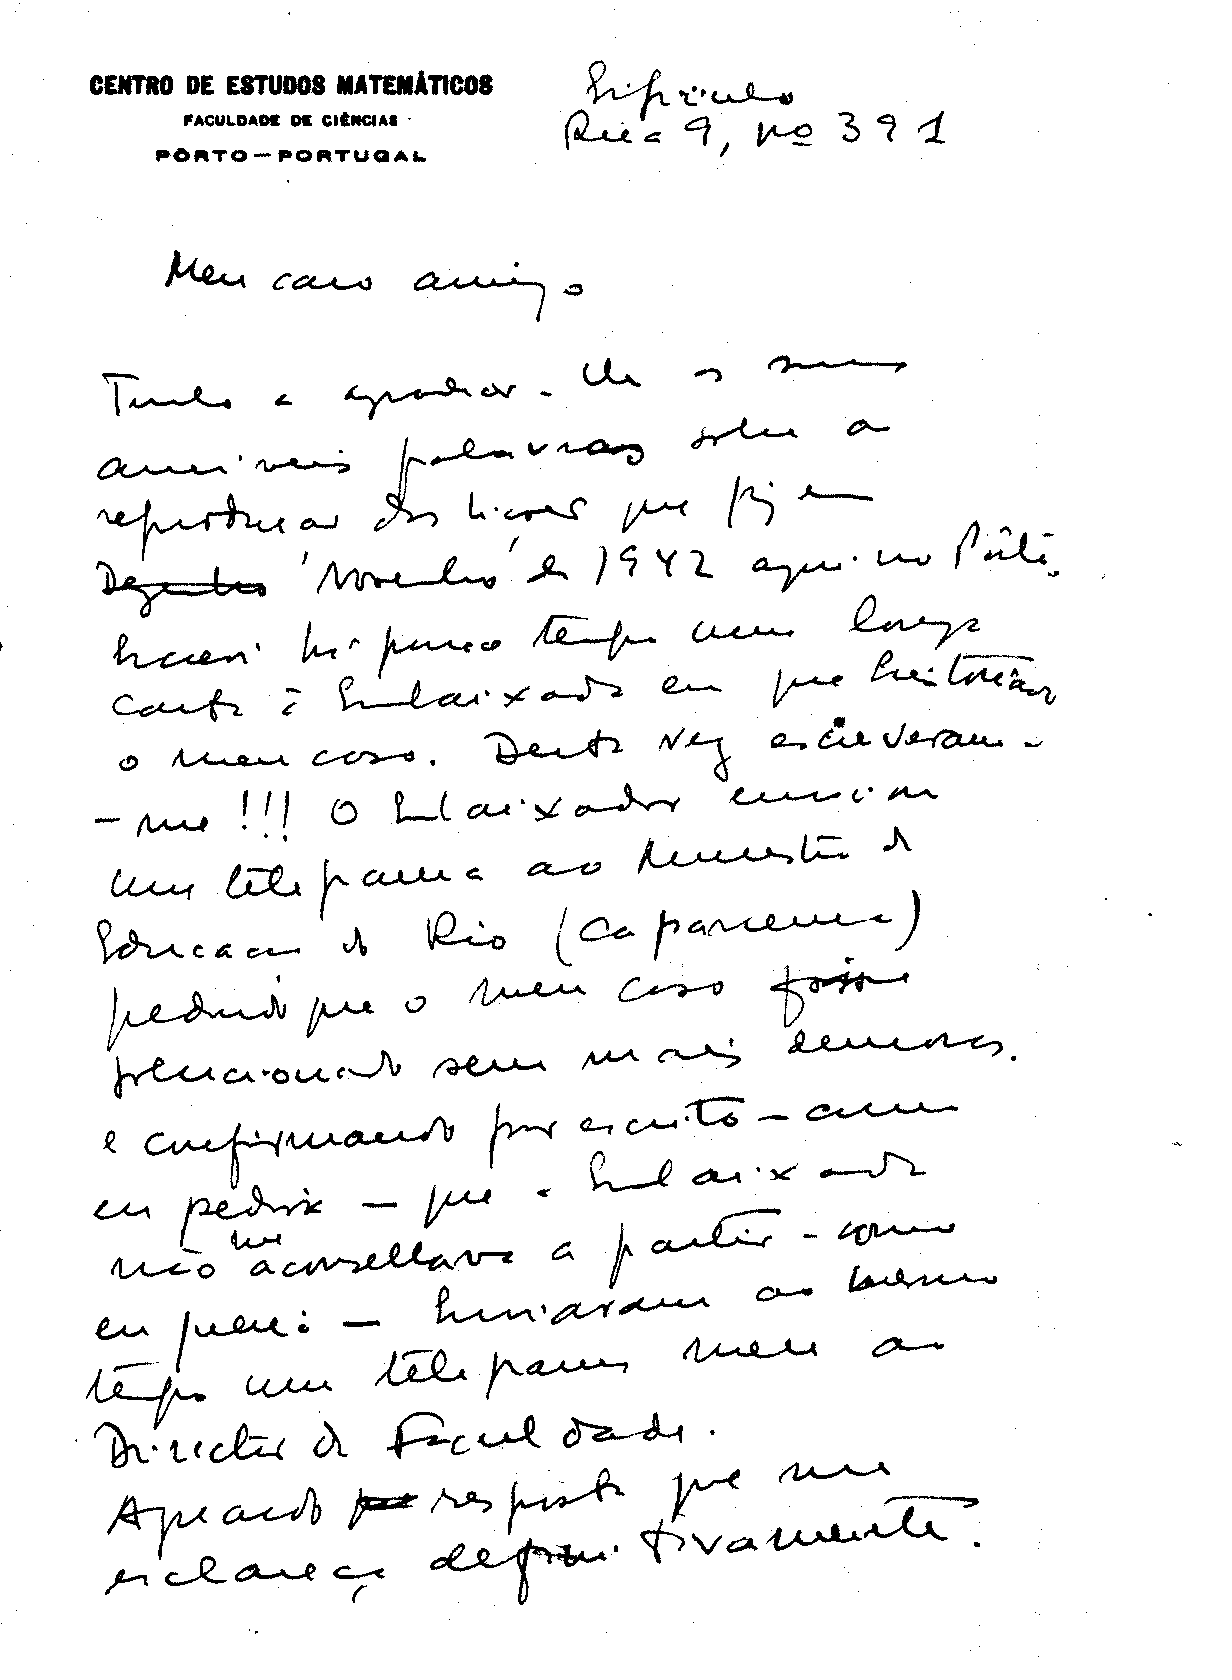 CENTRO DE ESTUDOS MATEMÁTICOS
FACULDADE DE CIÊNCIAS
PÔRTO — PORTUGAL
Espinho
Rua 9, nº 391
Meu caro amigo
Tenho a agradecer-lhe as suas
amáveis palavras sobre a
reprodução das lições que fiz em
Dezembro Novembro de 1942 aqui no Pôrto.
Escrevi há pouco tempo uma longa
carta à Embaixada em que historiava
o meu caso. Desta vez escreveram-
-me!!! O Embaixador enviou
um telegrama ao Ministro de
Educação do Rio (Capanema)
pedindo que o meu caso fosse
solucionado sem mais demoras.
e confirmando por escrito - como
eu pedira — que a Embaixada
não me aconselhava a partir - como
eu pedi — Enviaram ao mesmo
tempo um telegrama meu ao
Director da Faculdade.
Aguardo resposta que me
esclareça definitivamente.